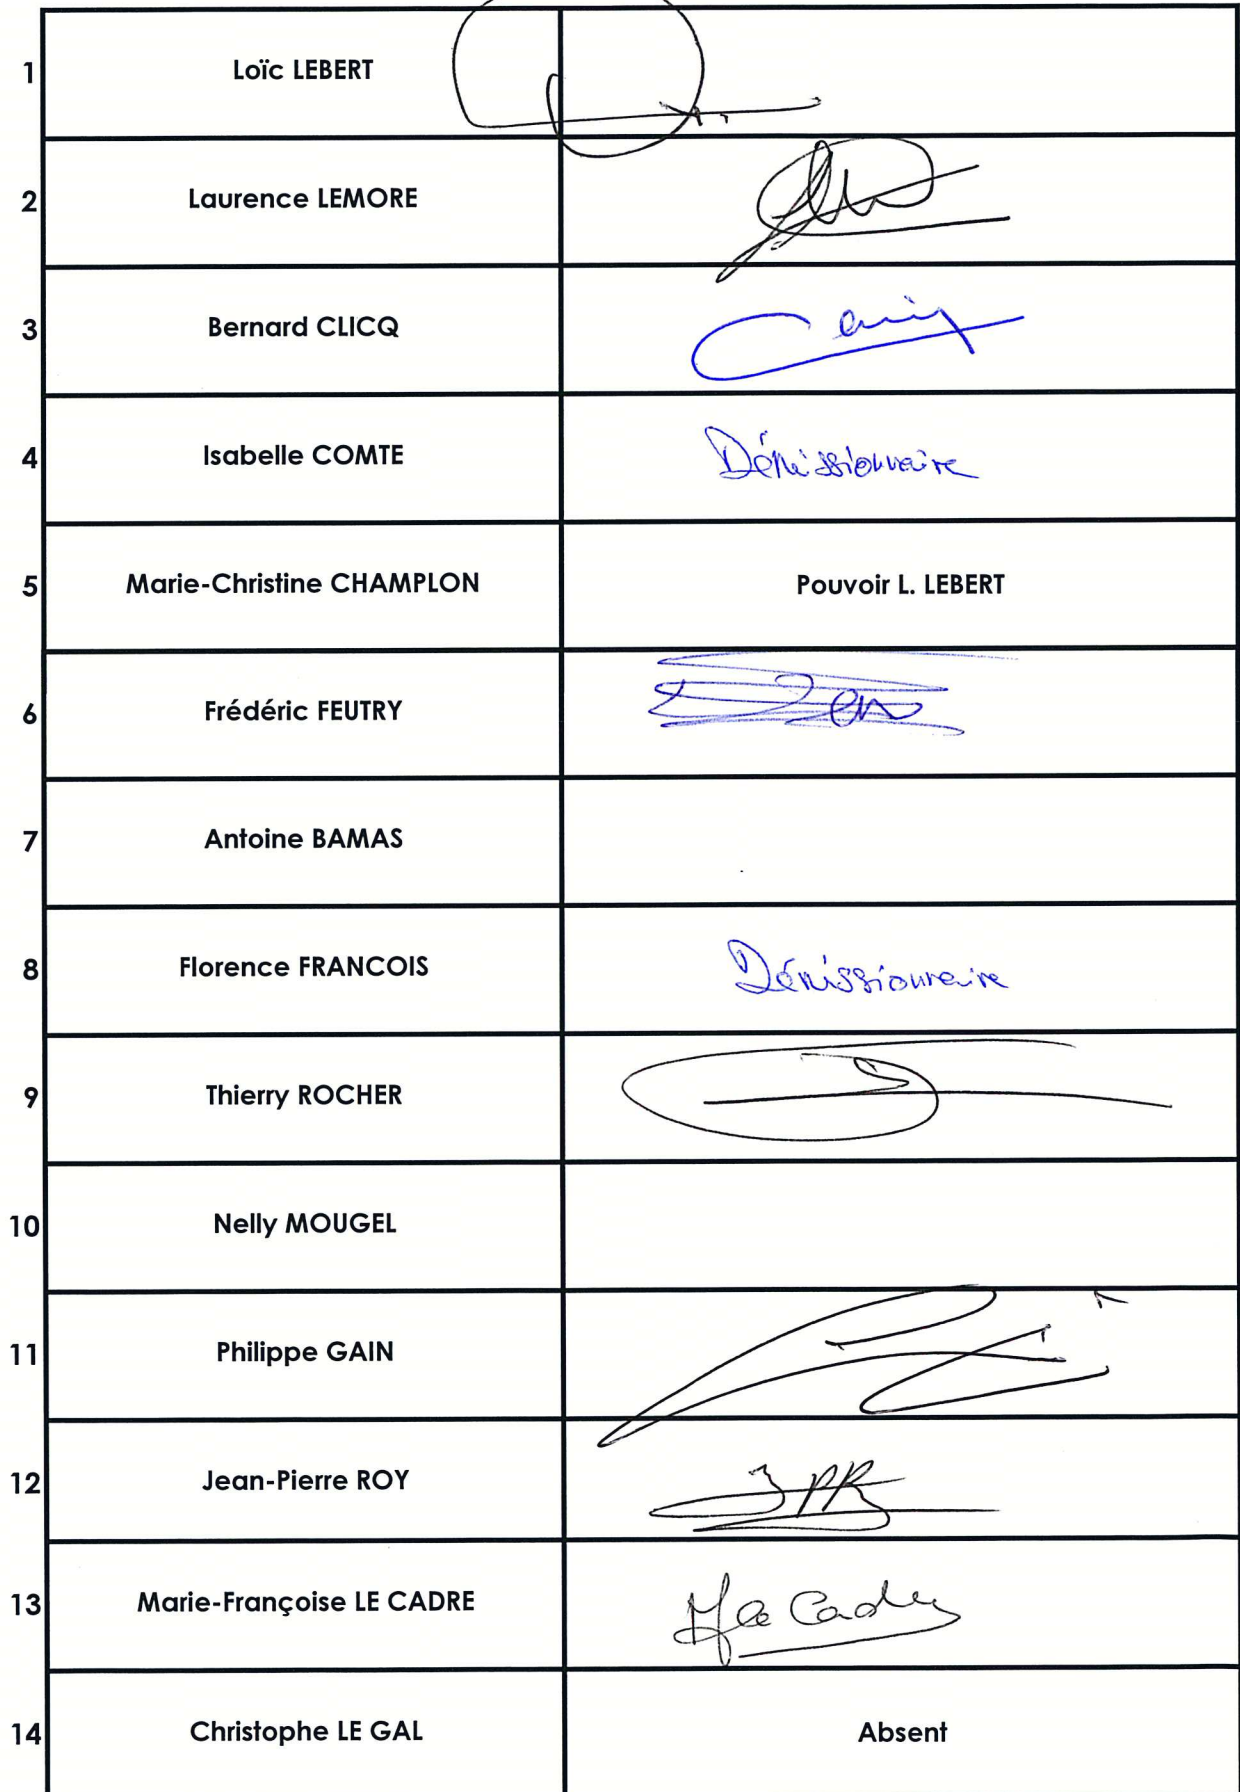 1 Loïc LEBERT
2 Laurence LEMORE
3 Bernard CLICQ
4 Isabelle COMTE Démissionnaire
5 Marie-Christine CHAMPLON Pouvoir L. LEBERT
6 Frédéric FEUTRY
7 Antoine BAMAS
8 Florence FRANCOIS Démissionnaire
9 Thierry ROCHER
10 Nelly MOUGEL
11 Philippe GAIN
12 Jean-Pierre ROY JPR
13 Marie-Françoise LE CADRE
14 Christophe LE GAL Absent